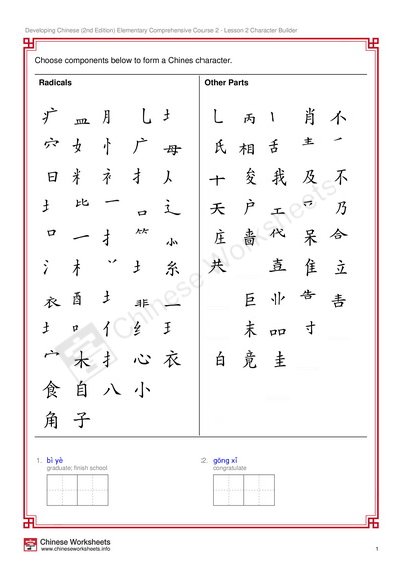 Developing Chinese (2nd Edition) Elementary Comprehensive Course 2 - Lesson 2 Character Builder
Choose components below to form a Chines character.
Radicals
Other Parts
疒 皿 月 乚 扌
乚 丙 丨 肖 不
穴 女 忄 广 母
氏 相 舌 龶
日 米 衤 扌 人
十 夋 我 及 不
扌 比 一 口 辶
天 户 工 乛 乃
口 一 扌 ⺮ 小
庄 啬 代 呆 合
氵 木 丷 土 糸
共 直 隹 立
衣 酉 土 非 一
巨 业 告 𠮷
土 口 亻 纟 王
末 吅 寸
宀 木 扌 心 衣
白 竟 圭
食 自 八 小
角 子
Chinese Worksheets
1. bì yè
graduate; finish school
2. gōng xǐ
congratulate
Chinese Worksheets
www.chineseworksheets.info
1